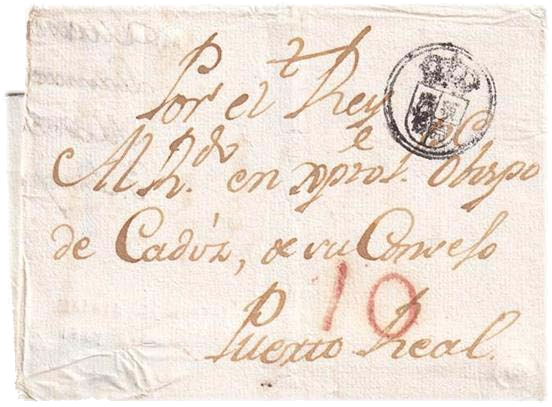 Por el Rey
Al R.do en xpto. Obispo
de Cadiz, de su Consejo
10
Puerto Real.